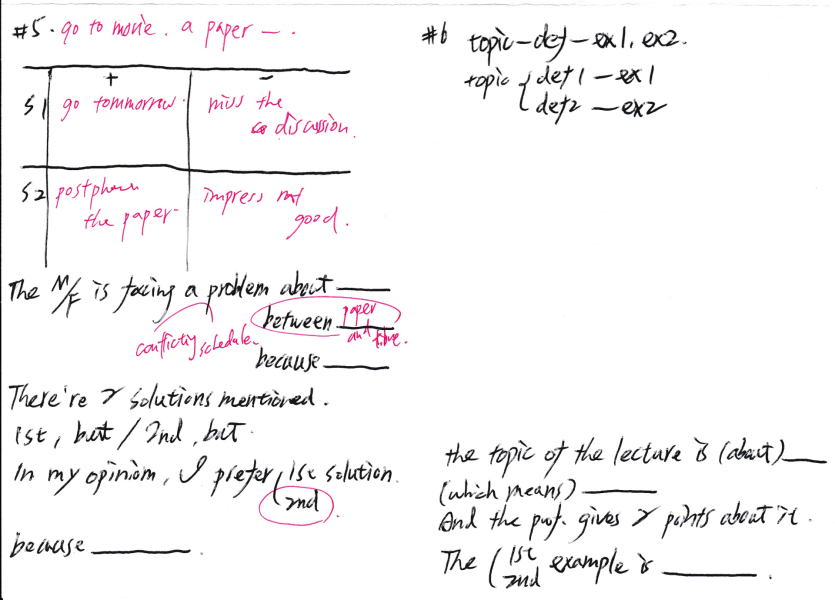 #5. go to movie. a paper — .
+ −
S1 go tommorrow. miss the
discussion.
S2 postphone impress not
the paper- good.
The M/F is facing a problem about ____
between paper
and time.
conflicting schedule.
because ____
There're 2 solutions mentioned.
1st, but / 2nd, but
In my opinion, I prefer ( 1st solution.
2nd
because ____ .
#6 topic-def-ex1, ex2.
topic { def1 — ex1
def2 — ex2
the topic of the lecture is (about) ____
(which means) ____
And the prof. gives 2 points about it.
The ( 1st
2nd example is ____ .